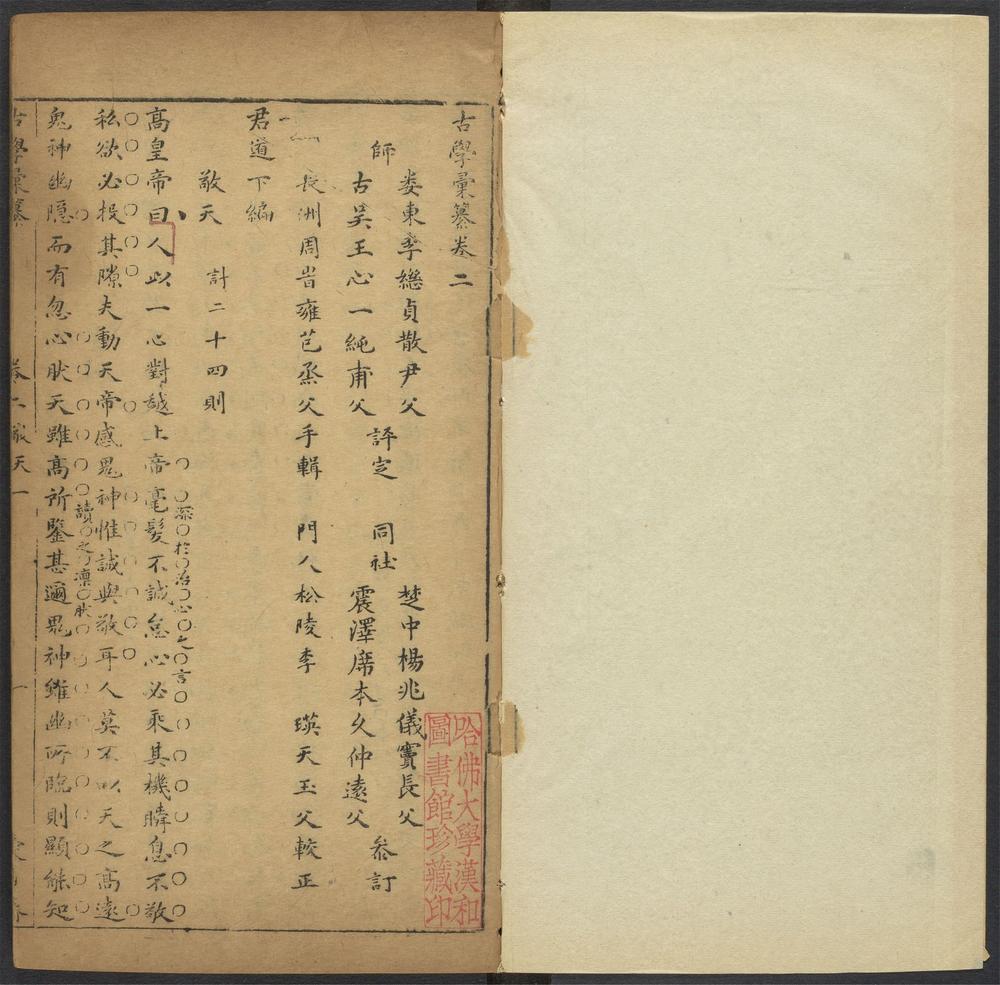 古學彙纂卷二
婁東季繼貞散尹父
師
古吳王心一純甫父
評定
同社
楚中楊兆儀賓長父
震澤席本久仲遠父
叅訂
長洲周旹雍芑烝父手輯
門人松陵李 瑛天玉父較正
君道下編
敬天 計二十四則
高皇帝曰人以一心對越上帝毫髮不誠怠心必乘其機瞬息不敬
深於治心之言
私欲必投其隙夫動天帝感鬼神惟誠與敬耳人莫不以天之高遠
鬼神幽隱而有忽心肰天雖高所鑒甚邇鬼神雖幽所臨則顯能知
讀之凛肰
古學彙纂 卷二敬天 一
哈佛大學漢和圖書館珍藏印